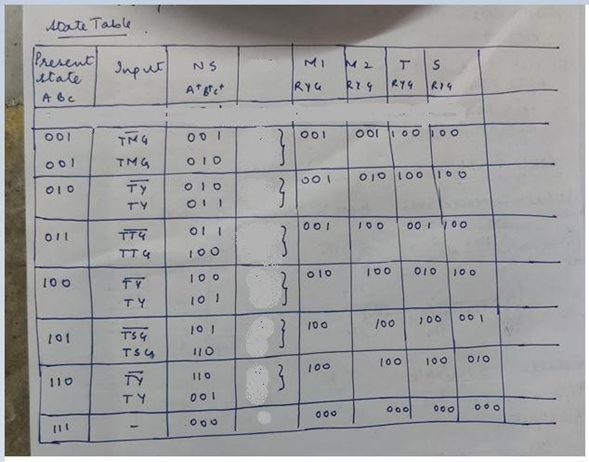 State Table
Present State A B C Input NS A+ B+ C+ M1 RYG M2 RYG T RYG S RYG
001 T̅M̅G̅ 001 001 001 100 100
001 TMG 010
010 T̅Y̅ 010 001 010 100 100
TY 011
011 T̅T̅G̅ 011 001 100 001 100
TTG 100
100 T̅Y̅ 100 010 100 010 100
TY 101
101 T̅S̅G̅ 101 100 100 100 001
TSG 110
110 T̅Y̅ 110 100 100 100 010
TY 001
111 - 000 000 000 000 000